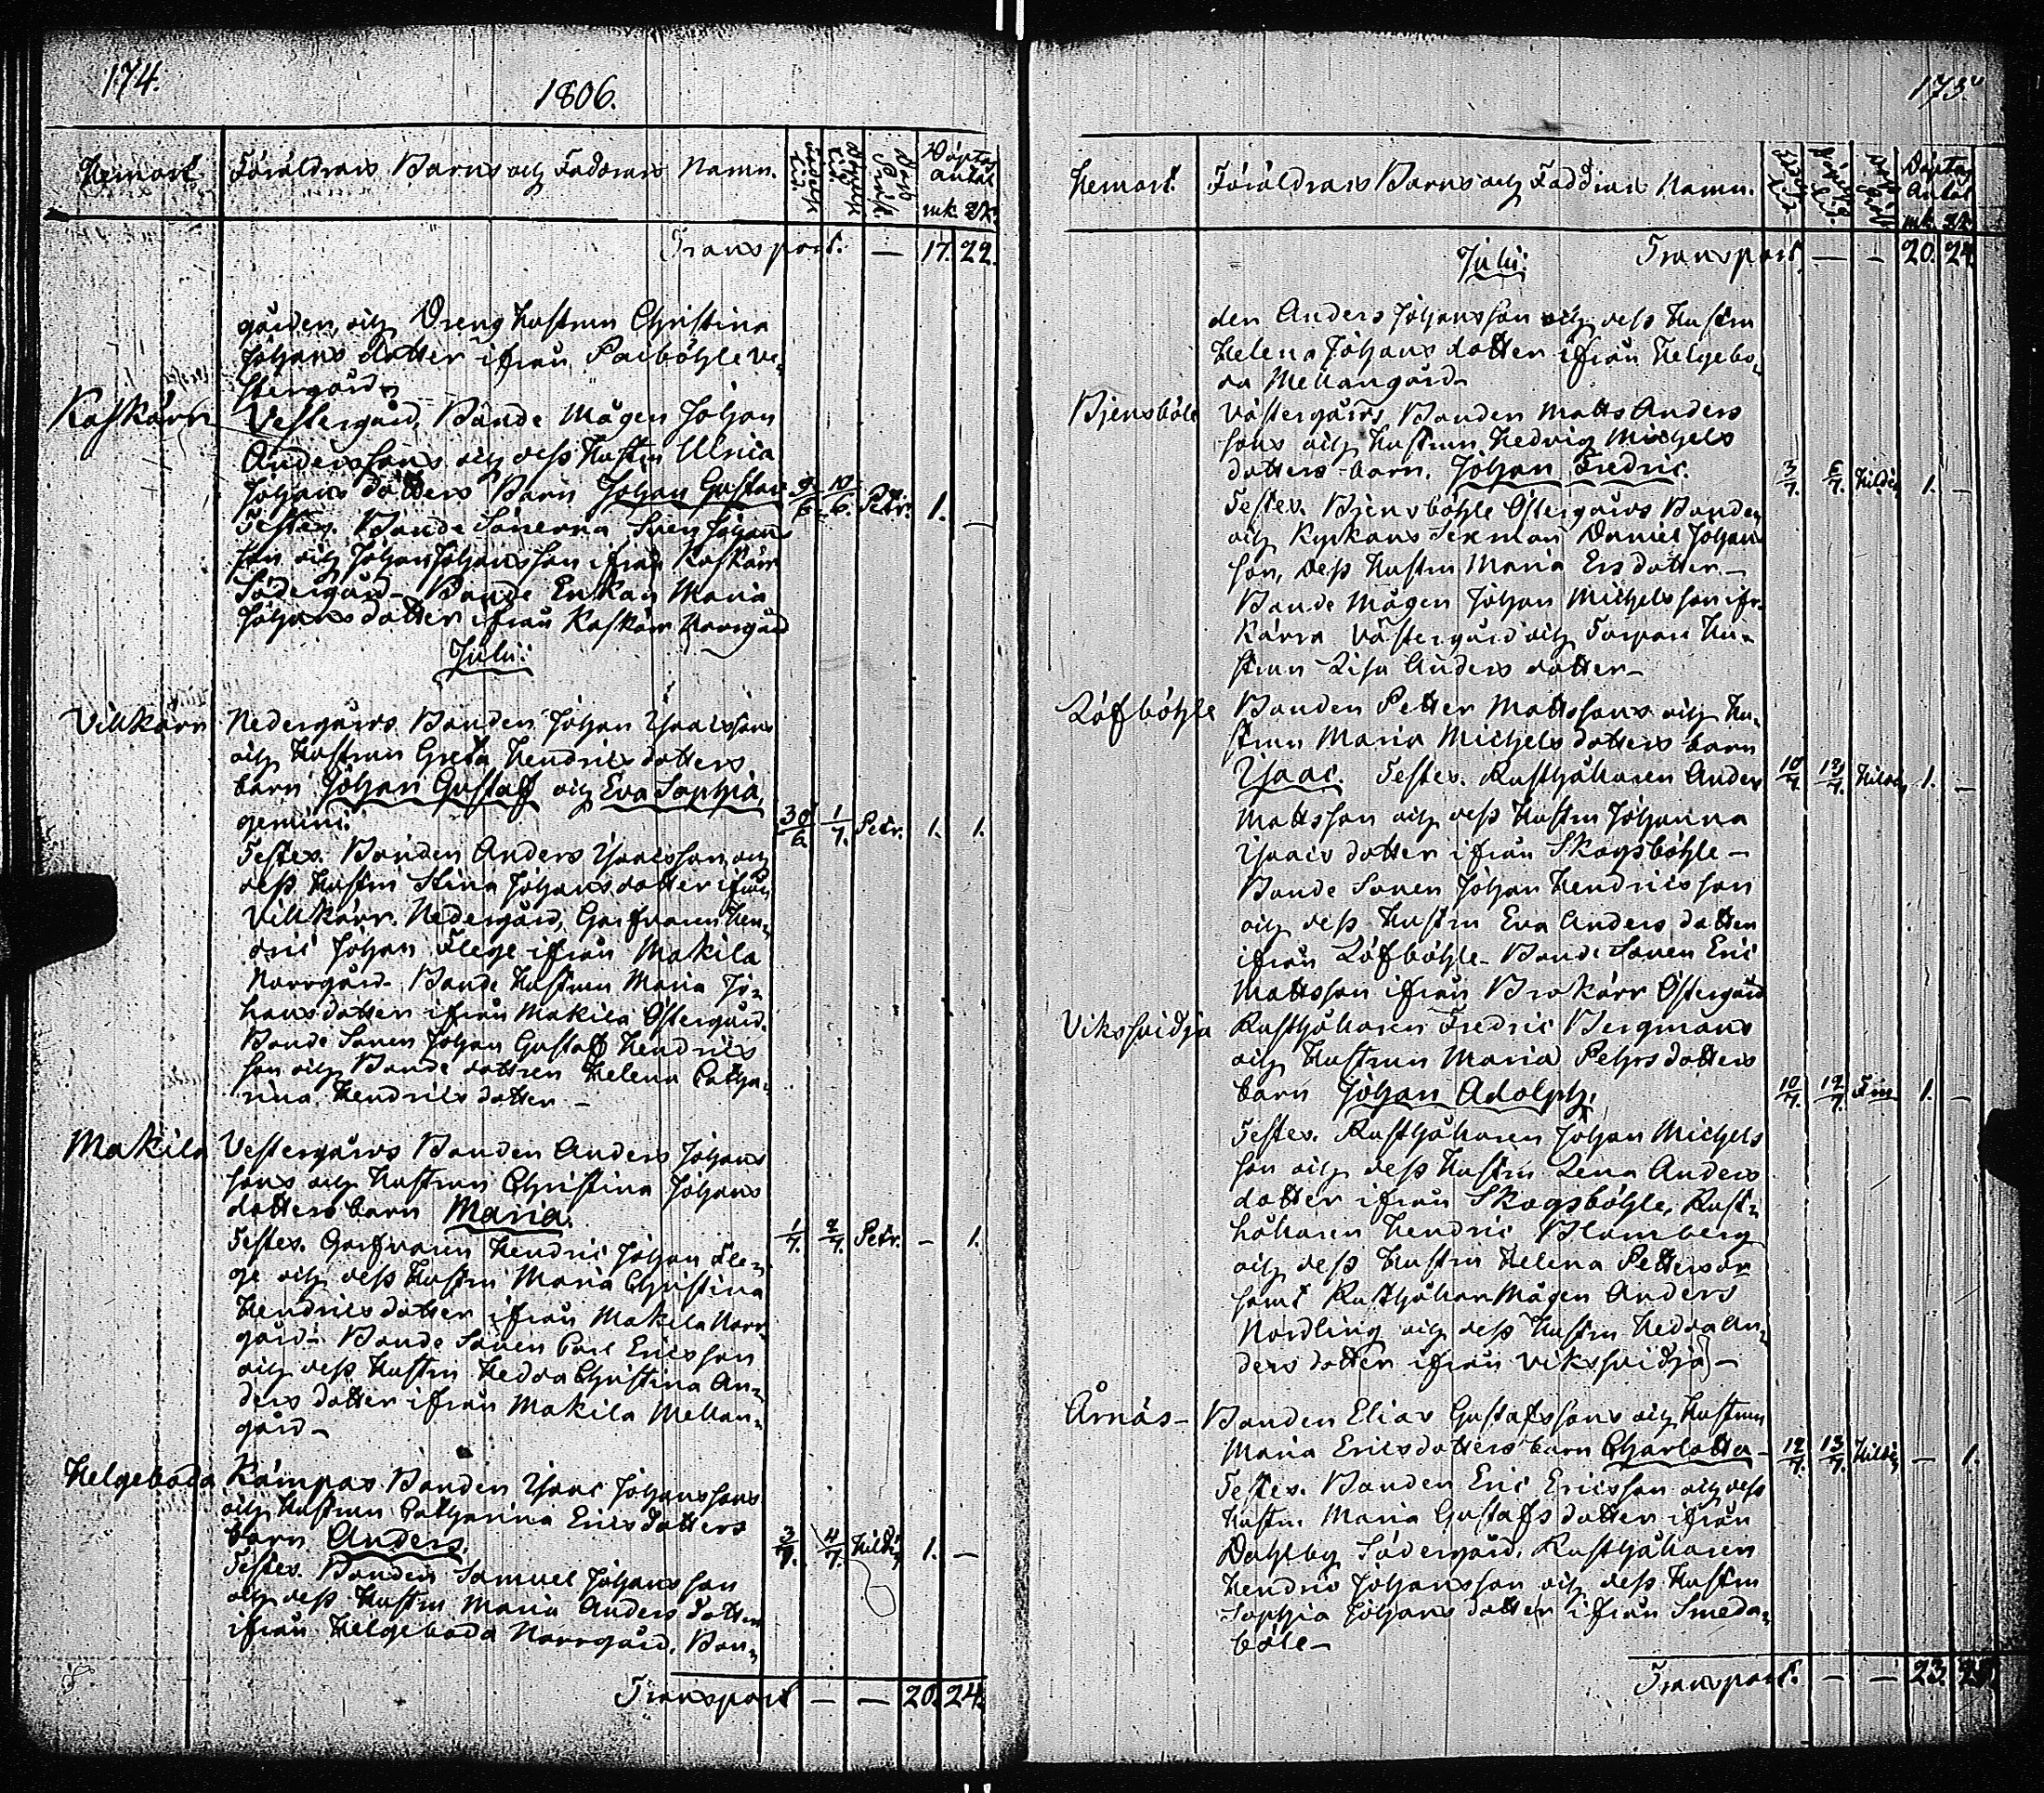 174.
1806.
Hemort
Föräldrars Barns och Faddrars Namn.
Döptas
antal
mk. qk.
Transport. — 17. 22.
gården, och Dreng hustrun Christina
Johans dotter ifrån Paiböhle ve-
stergård
Kaskärr Vestergård, Bonde Mågen Johan
Anderssons och dess Hustru Ulrica
Johans dotters Barn Johan Gustav 9/6 10/6. Petr. 1. —
Testes. Bonde Sönerna Sven Johans
son och Johan Johansson ifrån Kaskärr
Södergård — Bonde Enkan Maria
Johans dotter ifrån Kaskärr Norrgård
Julii:
Villkärr Nedergårds Bonden Johan Isacssons
och Hustrun Greta Hendrics dotters
barn Johan Gustaf och Eva Sophia,
gemini. 30/6 1/7. Petr. 1. 1.
Testes. Bonden Anders Isacsson och
dess Hustru Stina Johans dotter ifrån
Villkärr Nedergård, Garfvaren Hen-
dric Johan Flege ifrån Makila
Norrgård. Bonde Hustrun Maria Jo-
hans dotter ifrån Makila Östergård.
Bonde Sonen Johan Gustaf Hendrics
son och Bonde dottren Helena Catha-
rina Hendrics dotter —
Makila Vestergårds Bonden Anders Johans
sons och Hustrun Christina Johans
dotters barn Maria. 1/7. 2/7. Petr. — 1.
Testes. Garfvaren Hendric Johan Fle-
ge och dess Hustru Maria Christina
Hendrics dotter ifrån Makila Norr-
gård — Bonde Sonen Carl Ericsson
och dess Hustru Hedda Christina An-
ders dotter ifrån Makila Mellan-
gård —
Helgeboda Kämpas Bonden Isac Johanssons
och Hustrun Catharina Erics dotters
barn Anders. 3/7. 4/7. Hildén 1. —
Testes. Bonden Samuel Johansson
och dess Hustru Maria Anders dotter
ifrån Helgeboda Norrgård, Bon-
Transport — — 20. 24.
175.
Hemort.
Föräldrars Barns och Faddrars Namn.
Döptas
Antal
mk. qk.
Julii: Transport. — — 20. 24.
den Anders Johansson och dess Hustru
Helena Johans dotter ifrån Helgebo-
da Mellangård —
Bjensböle Västergårds Bonden Matts Anders
sons och Hustrun Hedvig Michels
dotters barn. Johan Fredric. 3/7. 6/7. Hildén 1. —
Testes. Bjensböhle Östergårds Bonden
och Kyrkans Sexman Daniel Johans
son, dess Hustru Maria Ersdotter —
Bonde Mågen Johan Michelsson ifr.
Kärra Västergård och Torpare Hu-
strun Lisa Anders dotter —
Löfböhle Bonden Petter Mattssons och Hu-
strun Maria Michels dotters barn
Isaac. Testes. Rusthållaren Anders 10/7. 13/7. Hildén 1. —
Mattsson och dess Hustru Johanna
Isacs dotter ifrån Skogsböhle —
Bonde Sonen Johan Hendricsson
och dess Hustru Eva Anders dotter
ifrån Löfböhle — Bonde Sonen Eric
Mattsson ifrån Brokärr Östergård
Vikssvidja Rusthållaren Fredric Bergmans
och Hustrun Maria Pehrs dotters
barn Johan Adolph. 10/7. 12/7. 1. —
Testes. Rusthållaren Johan Michels
son och dess Hustru Lena Anders
dotter ifrån Skogsböhle, Rust-
hållaren Hendric Blomberg
och dess Hustru Helena Pettersdr
samt Rusthållar Mågen Anders
Nordling och dess Hustru Hedda An-
ders dotter ifrån Vikssvidja —
Årnäs — Bonden Elias Gustafssons och Hustrun
Maria Ericsdotters barn Charlotta — 12/7. 13/7. Hildén — 1.
Testes. Bonden Eric Ericsson och dess
Hustru Maria Gustafs dotter ifrån
Dahlby Södergård. Rusthållaren
Hendric Johansson och dess Hustru
Sophia Johans dotter ifrån Smeda-
böle —
Transport. — — 23. 25.